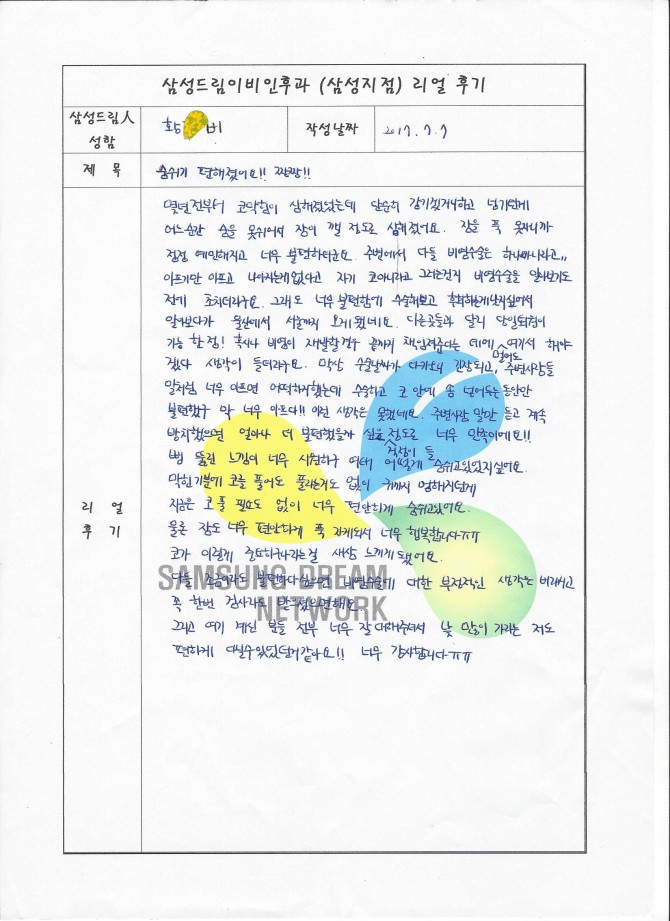 삼성드림이비인후과 (삼성지점) 리얼 후기
삼성드림人 성함
황 비
작성날짜
2017. 7. 7
제 목
숨쉬기 편해졌어요!! 짱짱!!
리 얼
후 기
몇년전부터 코막힘이 심해졌었는데 단순히 감기겠거니하고 넘기던게
어느순간 숨을 못쉬어서 잠이 깰 정도로 심해졌어요. 잠을 푹 못자니까
점점 예민해지고 너무 불편하더군요. 주변에서 다들 비염수술은 하나마나라고,,
아프기만 아프고 나아지는게없다고 자기 코아니라고 그러는건지 비염수술을 알아보기도
전에 초치더라구요. 그래도 너무 불편함에 수술해보고 후회하는게낫지싶어서
알아보다가 울산에서 서울까지 오게됐네요. 다른곳들과 달리 단일
가능 한점! 혹시나 비염이 재발할경우 끝까지 책임져준다는 데에 여기서 해야
겠다 생각이 들더라구요. 막상 수술날짜가 다가오니 긴장되고, 주변사람들
말처럼 너무 아프면 어떡하지했는데 수술하고 코 안에 솜 넣어둔 동안만
불편했구 막 너무 아프다!! 이런 생각은 못했네요. 주변사람 말만 듣고 계속
방치했으면 얼마나 더 불편했을까 싶을 정도로 너무 만족이에요!!
뻥 뚫린 느낌이 너무 시원하구 여태 어떻게 숨쉬고있었지싶어요.
막힌기분에 코를 풀어도 풀리는거도 없이 귀까지 멍해지던게
지금은 코 풀 필요도 없이 너무 편안하게 숨쉬고있어요.
물론 잠도 너무 편안하게 푹 자게되서 너무 행복합니다ㅠㅠ
코가 이렇게 중요하구나라는걸 새삼 느끼게 됐어요.
다들 조금이라도 불편하다싶으면 비염수술에 대한 부정적인 생각은 버리시고
꼭 한번 검사라도 받으면해요
그리고 여기 계신 분들 전부 너무 잘대해주셔서 낯 많이 가리는 저도
편하게 다닐수있었던거같아요!! 너무 감사합니다ㅠㅠ
SAMSUNG DREAM
NETWORK